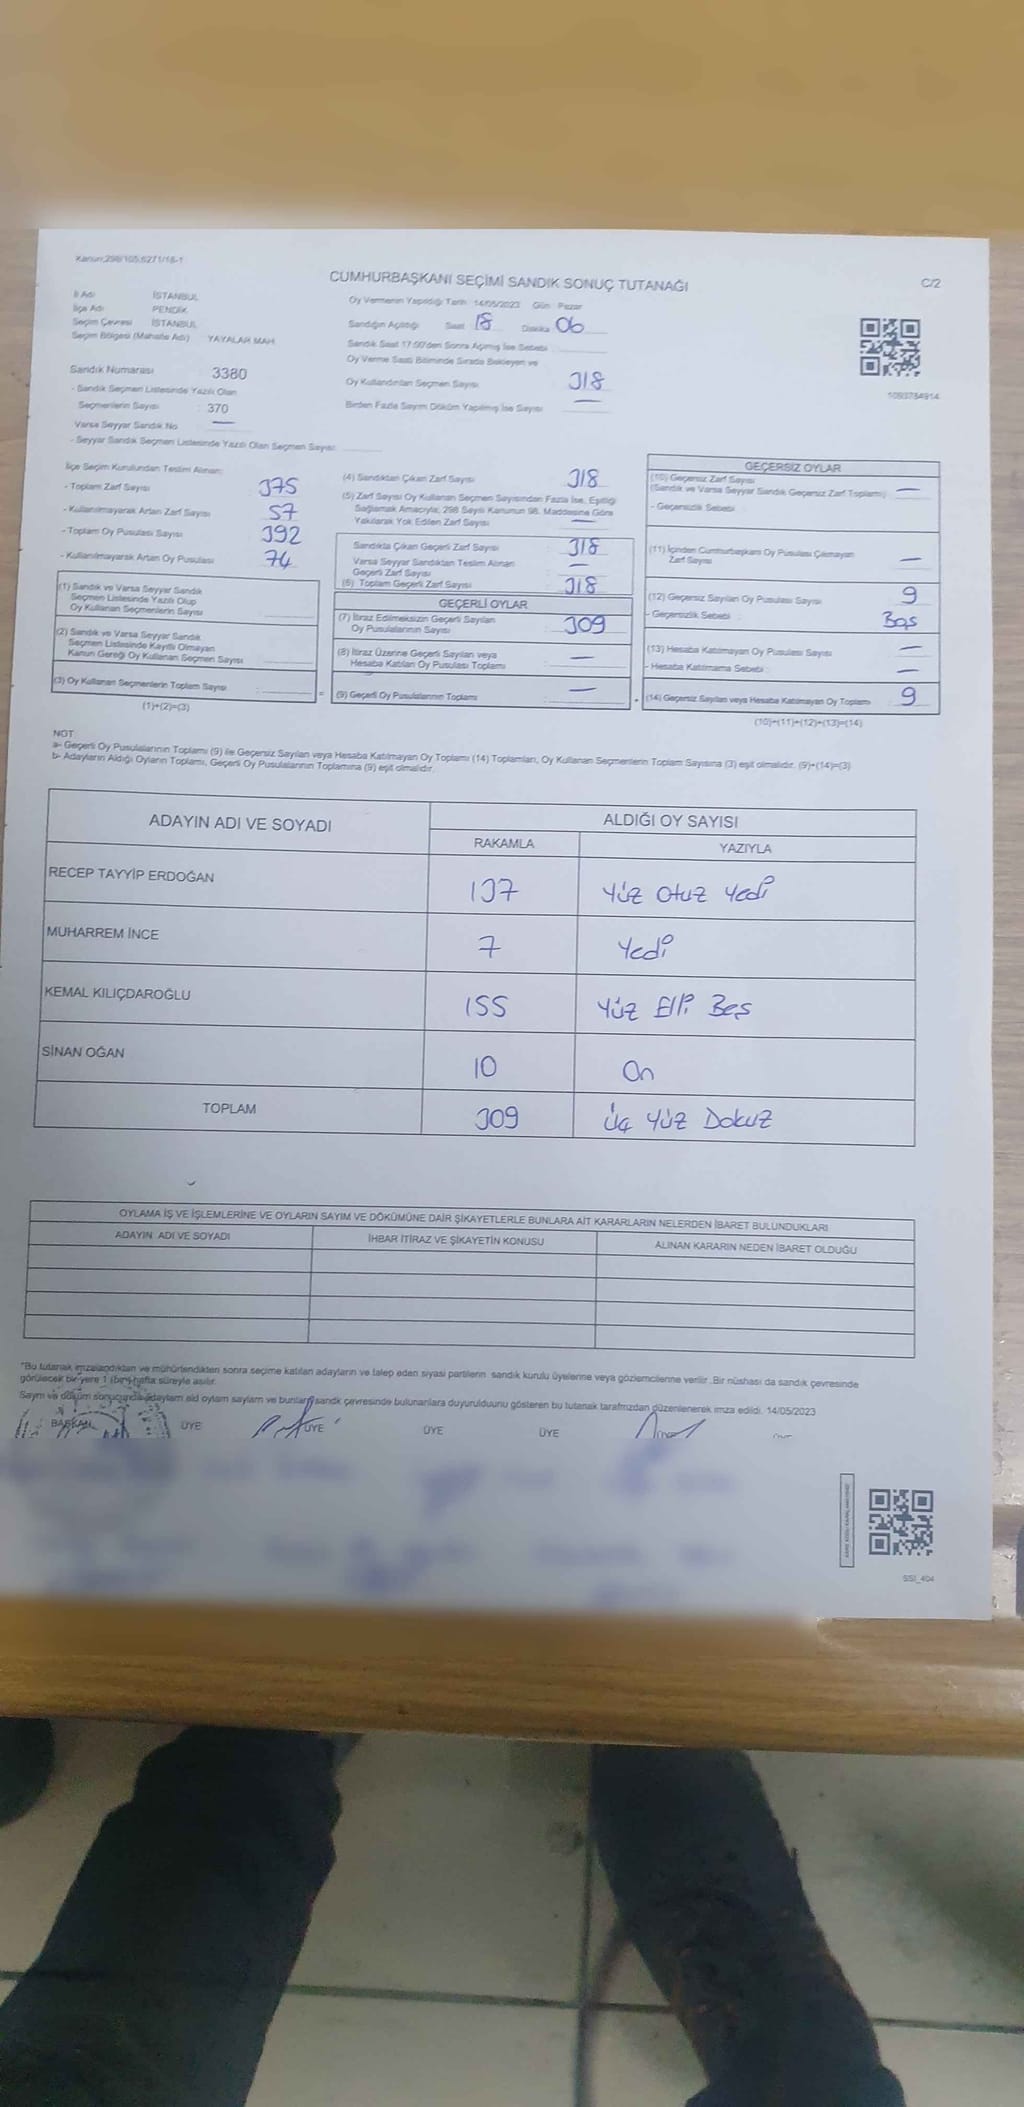 Kanun;298/105,6271/18-1
CUMHURBAŞKANI SEÇİMİ SANDIK SONUÇ TUTANAĞI
C/2
İl Adı İSTANBUL
İlçe Adı PENDİK
Seçim Çevresi İSTANBUL
Seçim Bölgesi (Mahalle Adı) YAYALAR MAH.
Sandık Numarası 3380
- Sandık Seçmen Listesinde Yazılı Olan
Seçmenlerin Sayısı : 370
Varsa Seyyar Sandık No —
- Seyyar Sandık Seçmen Listesinde Yazılı Olan Seçmen Sayısı:
Oy Vermenin Yapıldığı Tarih 14/05/2023 Gün Pazar
Sandığın Açıldığı Saat 18 Dakika 06
Sandık Saat 17:00'den Sonra Açılmış İse Sebebi
Oy Verme Saati Bitiminde Sırada Bekleyen ve
Oy Kullandırılan Seçmen Sayısı 318
Birden Fazla Sayım Döküm Yapılmış İse Sayısı —
1093784914
İlçe Seçim Kurulundan Teslim Alınan:
- Toplam Zarf Sayısı 375
- Kullanılmayarak Artan Zarf Sayısı 57
- Toplam Oy Pusulası Sayısı 392
- Kullanılmayarak Artan Oy Pusulası 74
(1) Sandık ve Varsa Seyyar Sandık
Seçmen Listesinde Yazılı Olup
Oy Kullanan Seçmenlerin Sayısı :
(2) Sandık ve Varsa Seyyar Sandık
Seçmen Listesinde Kayıtlı Olmayan
Kanun Gereği Oy Kullanan Seçmen Sayısı
(3) Oy Kullanan Seçmenlerin Toplam Sayısı :
(1)+(2)=(3)
(4) Sandıktan Çıkan Zarf Sayısı 318
(5) Zarf Sayısı Oy Kullanan Seçmen Sayısından Fazla İse, Eşitliği
Sağlamak Amacıyla, 298 Sayılı Kanunun 98. Maddesine Göre
Yakılarak Yok Edilen Zarf Sayısı —
Sandıkta Çıkan Geçerli Zarf Sayısı : 318
Varsa Seyyar Sandıktan Teslim Alınan
Geçerli Zarf Sayısı —
(6) Toplam Geçerli Zarf Sayısı : 318
GEÇERLİ OYLAR
(7) İtiraz Edilmeksizin Geçerli Sayılan
Oy Pusulalarının Sayısı : 309
(8) İtiraz Üzerine Geçerli Sayılan veya
Hesaba Katılan Oy Pusulası Toplamı : —
= (9) Geçerli Oy Pusulalarının Toplamı : —
GEÇERSİZ OYLAR
(10) Geçersiz Zarf Sayısı
(Sandık ve Varsa Seyyar Sandık Geçersiz Zarf Toplamı) —
- Geçersizlik Sebebi :
(11) İçinden Cumhurbaşkanı Oy Pusulası Çıkmayan
Zarf Sayısı —
(12) Geçersiz Sayılan Oy Pusulası Sayısı 9
- Geçersizlik Sebebi : Boş
(13) Hesaba Katılmayan Oy Pusulası Sayısı —
- Hesaba Katılmama Sebebi : —
+ (14) Geçersiz Sayılan veya Hesaba Katılmayan Oy Toplamı 9
(10)+(11)+(12)+(13)=(14)
NOT
a- Geçerli Oy Pusulalarının Toplamı (9) ile Geçersiz Sayılan veya Hesaba Katılmayan Oy Toplamı (14) Toplamları, Oy Kullanan Seçmenlerin Toplam Sayısına (3) eşit olmalıdır. (9)+(14)=(3)
b- Adayların Aldığı Oyların Toplamı, Geçerli Oy Pusulalarının Toplamına (9) eşit olmalıdır.
ADAYIN ADI VE SOYADI ALDIĞI OY SAYISI
RAKAMLA YAZIYLA
RECEP TAYYİP ERDOĞAN 137 Yüz Otuz Yedi
MUHARREM İNCE 7 Yedi
KEMAL KILIÇDAROĞLU 155 Yüz Elli Beş
SİNAN OĞAN 10 On
TOPLAM 309 Üç Yüz Dokuz
OYLAMA İŞ VE İŞLEMLERİNE VE OYLARIN SAYIM VE DÖKÜMÜNE DAİR ŞİKAYETLERLE BUNLARA AİT KARARLARIN NELERDEN İBARET BULUNDUKLARI
ADAYIN ADI VE SOYADI İHBAR İTİRAZ VE ŞİKAYETİN KONUSU ALINAN KARARIN NEDEN İBARET OLDUĞU
*Bu tutanak imzalandıktan ve mühürlendikten sonra seçime katılan adayların ve talep eden siyasi partilerin sandık kurulu üyelerine veya gözlemcilerine verilir. Bir nüshası da sandık çevresinde
görülecek bir yere 1 (bir) hafta süreyle asılır.
Sayım ve döküm sonucunda adayların ald oyların sayların ve bunların sandk çevresinde bulunanlara duyurulduunu gösteren bu tutanak tarafmzdan düzenlenerek imza edildi. 14/05/2023
BAŞKAN ÜYE ÜYE ÜYE ÜYE
SSİ_404